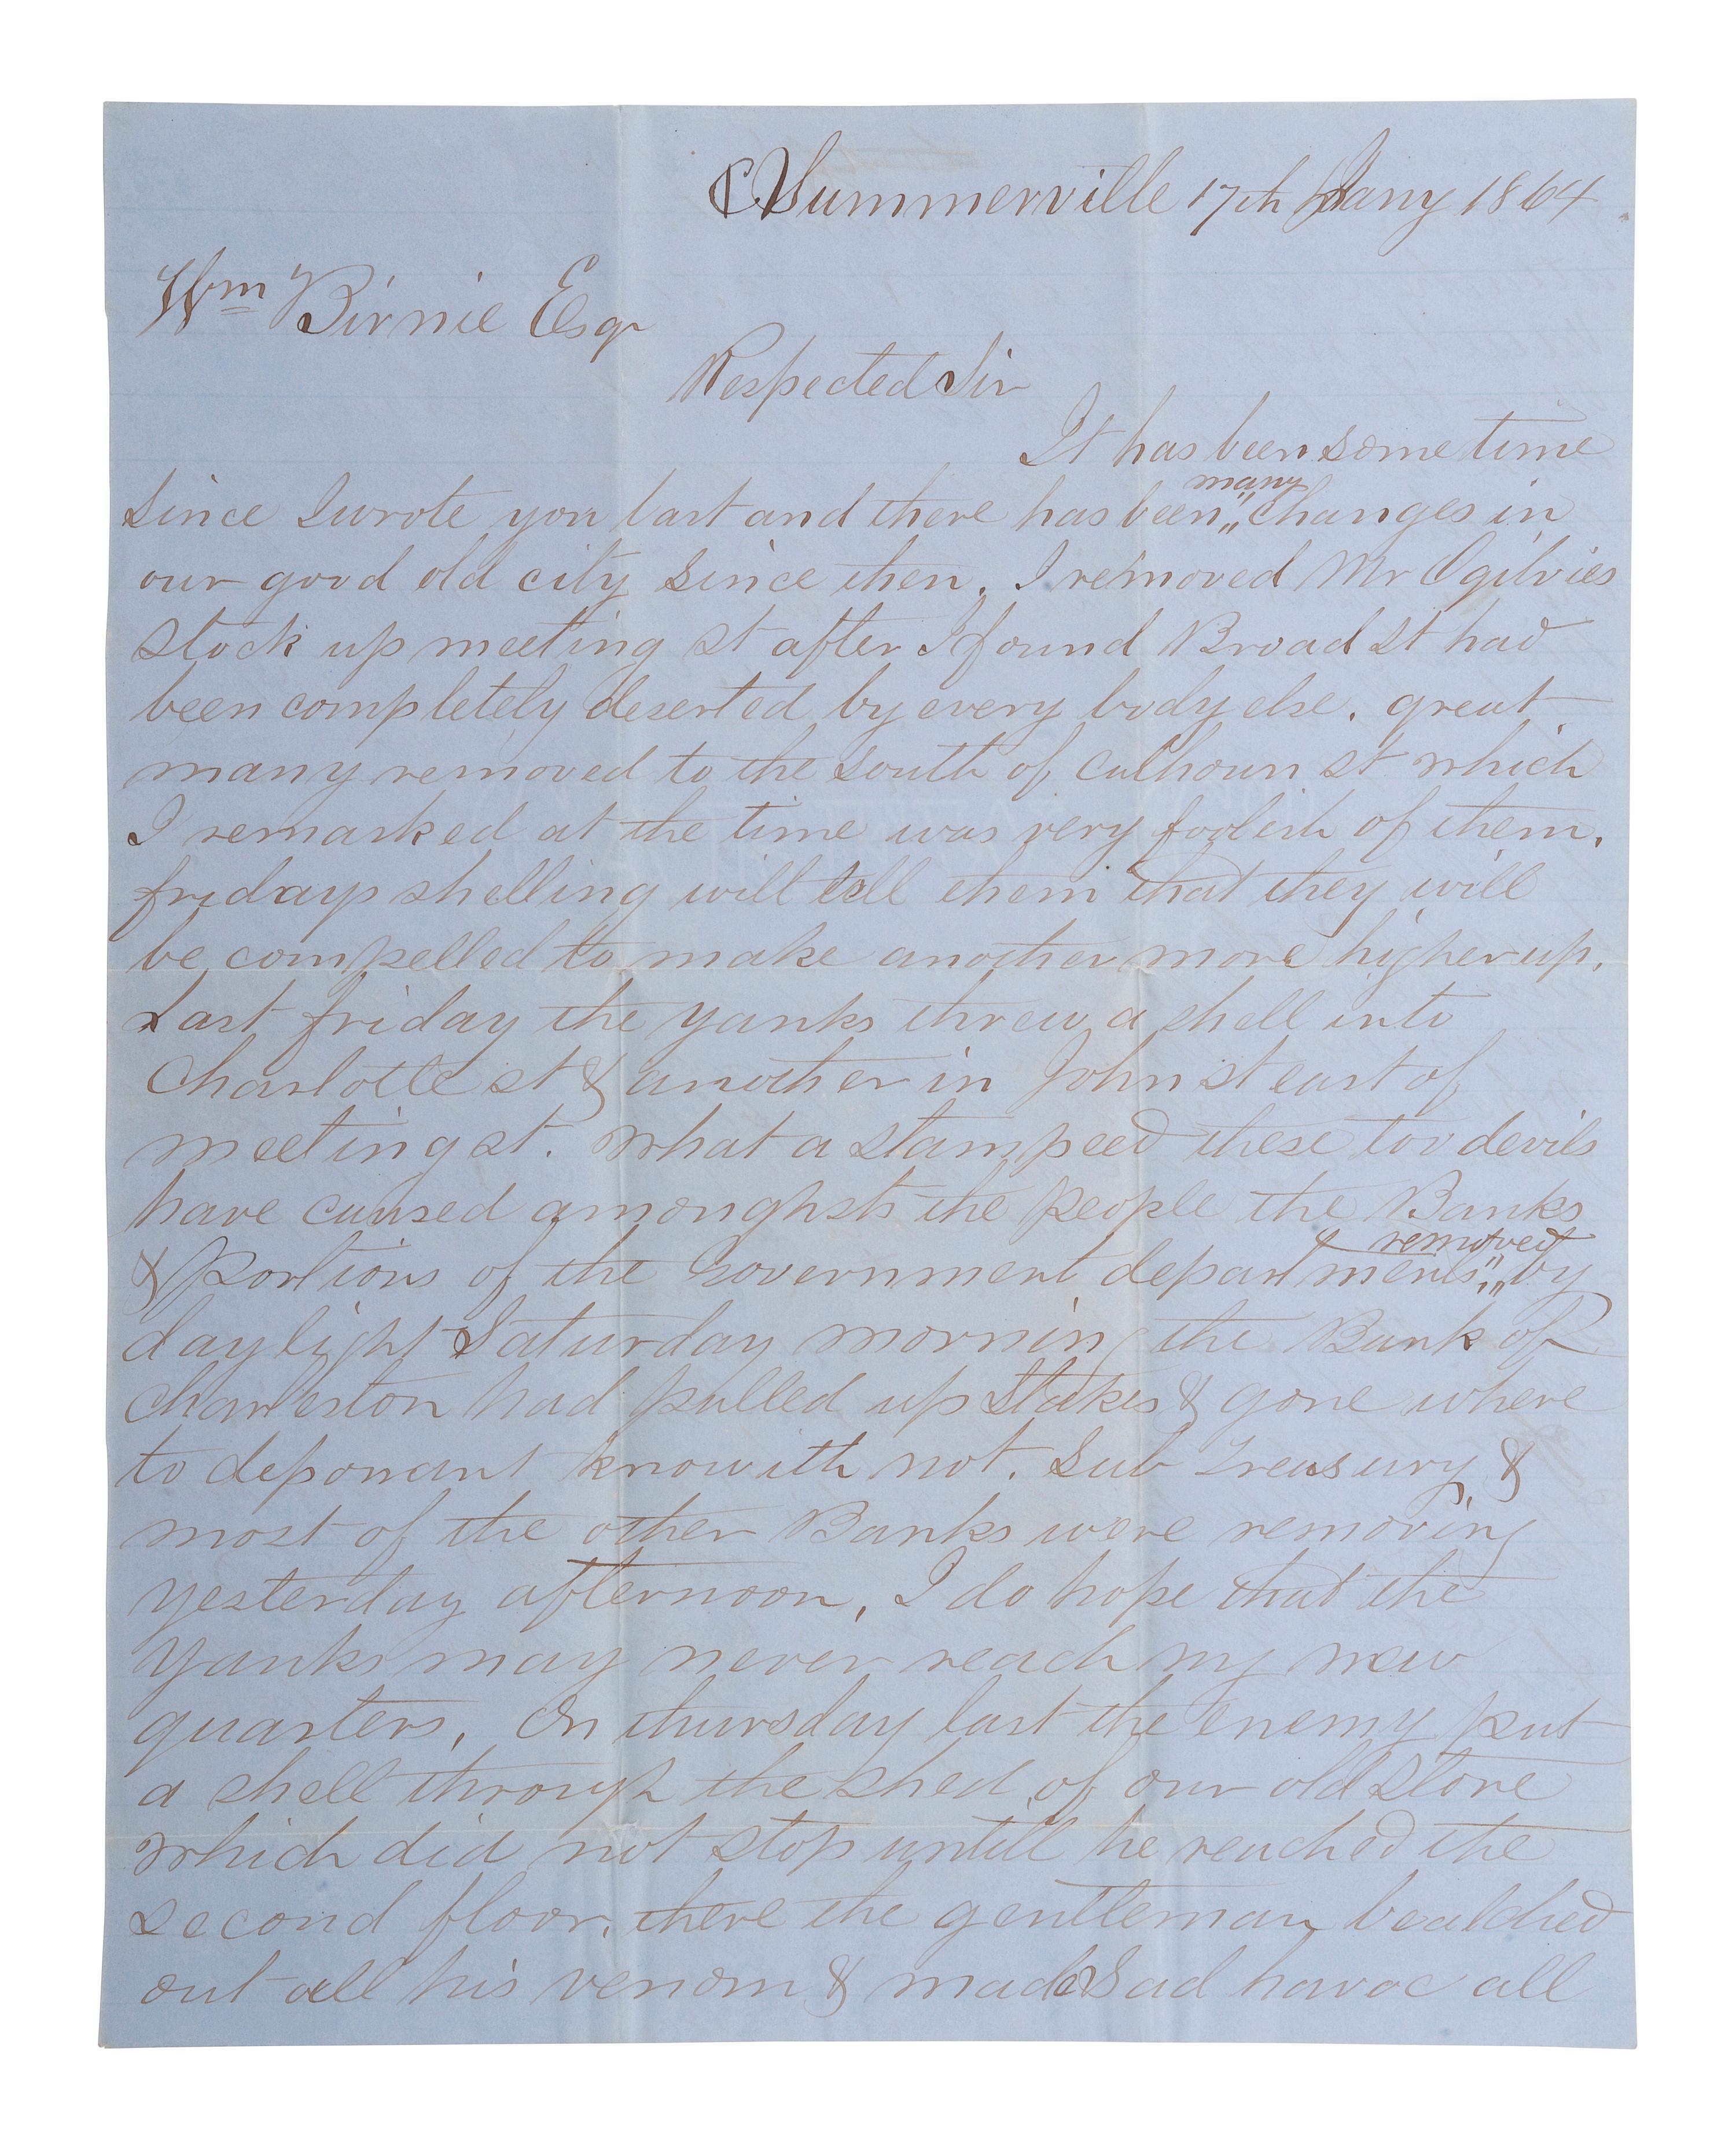 Summerville 17th Jany 1864
Wm Birnie Esqr
Respected Sir
It has been some time
many
since I wrote you last and there has been,, changes in
our good old city since then. I removed Mr Ogilvies
stock up meeting st after I found Broad St had
been completely deserted by every body else. great
many removed to the south of Calhoun st which
I remarked at the time was very foolish of them.
fridays shelling will tell them that they will
be compelled to make another move higher up.
Last friday the yanks threw a shell into
Charlotte st & another in John st east of
meeting st. What a stampeed these too devils
have caused amonghsts the people the Banks
removed
& portions of the Government departments,, by
daylight Saturday morning the Bank of
Charleston had pulled up Stakes & gone where
to deponant knowith not. Sub Treasury &
most of the other Banks were removing
yesterday afternoon, I do hope that the
Yanks may never reach my new
quarters. On thursday last the enemy put
a shell through the shed of our old Store
which did not stop untill he reached the
second floor. there the gentleman bealched
out all his venom & made Sad havoc all